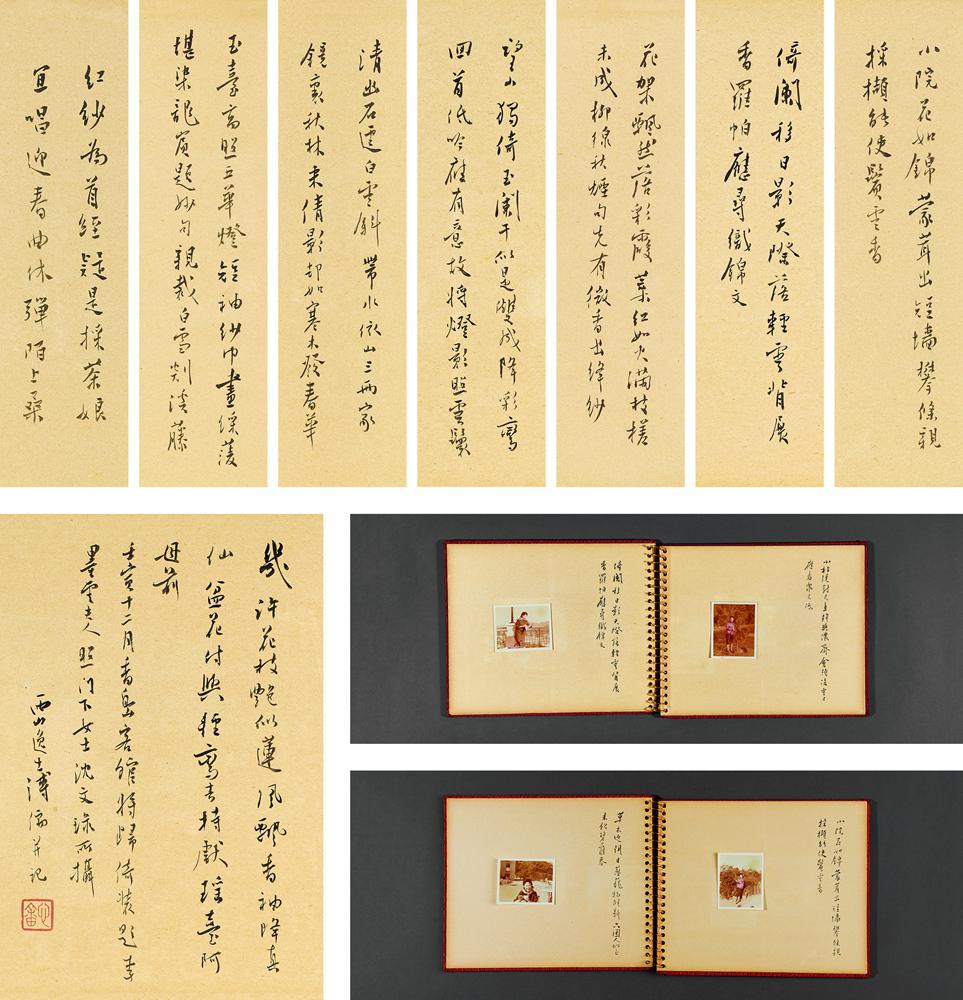 小院花如錦蒙茸出短墻攀條親
採擷能使鬢雲香
倚闌移日影天際落輕雲背展
香羅帕應尋織錦文
花架飄然落彩霞葉紅如火滿枝槎
未成柳線秋煙句先有微香出絳紗
望山獨倚玉闌干似是雙成降彩鸞
回首低吟應有意故將燈影照雲鬟
清幽石逕白雲斜帶水依山三兩家
鏡裏秋林來倩影却如寒木發春華
玉臺高照立華燈短袖紗巾畫綵菱
堪染龍賓題妙句親裁白雪剡溪藤
紅紗為首經疑是採茶娘
宜唱迎春曲休彈陌上桑
幾許花枝艷似蓮風飄香袖降真
仙盆花付與鸞去持獻瑤臺阿
母前
壬寅十二月香島客館將歸倚裝題奉
墨雲夫人照門下女士沈文所攝
西山逸士溥儒并記
心畬
倚闌移日影天際落輕雲背展
香羅帕應尋織錦文
小院花如錦蒙茸出短墻攀條親
採擷能使鬢雲香